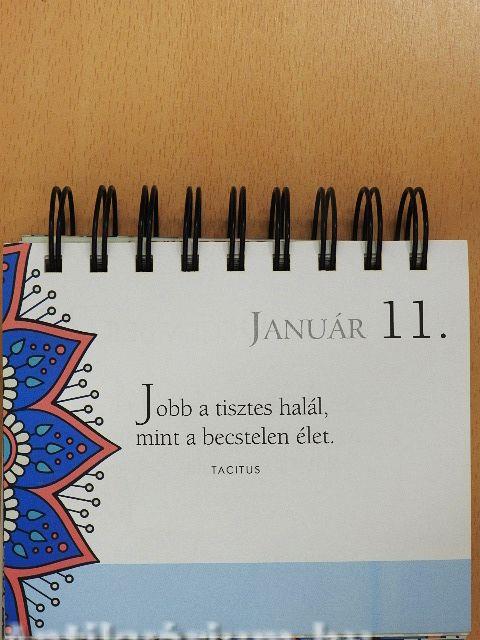 JANUÁR 11.
Jobb a tisztes halál,
mint a becstelen élet.
TACITUS